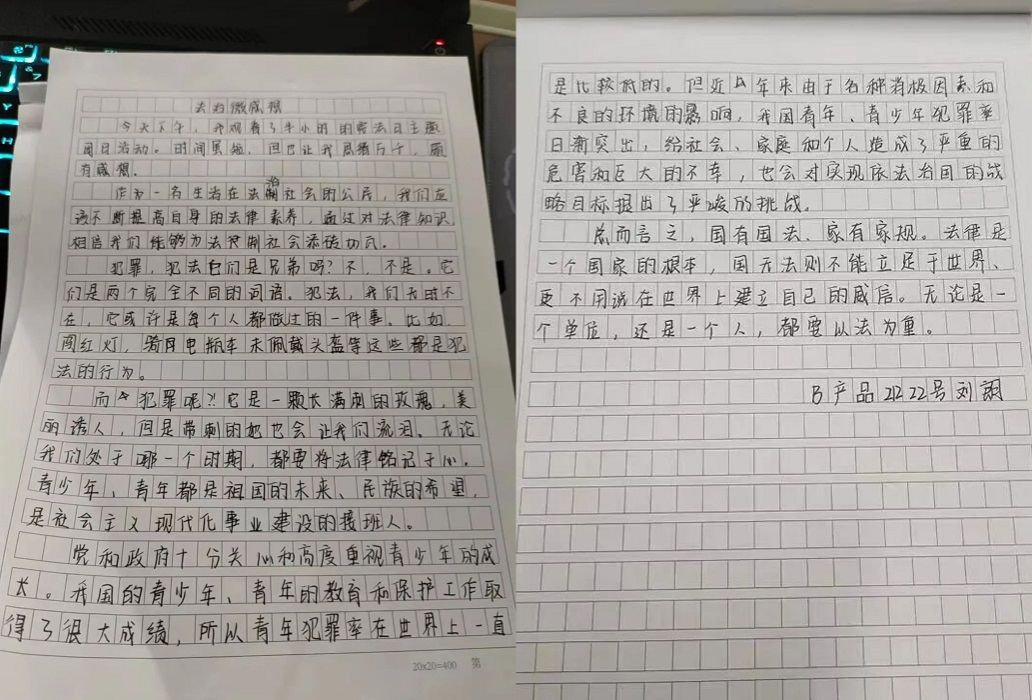 法治微感想
今天下午，我观看了半小时的宪法日主题
周日活动。时间虽短，但也让我思绪万千，颇
有感想。
作为一名生活在法治社会的公民，我们应
该不断提高自身的法律素养，通过对法律知识
相信我们能够为法制社会添砖加瓦。
犯罪，犯法它们是兄弟吗？不，不是。它
们是两个完全不同的词语。犯法，我们无时不
在，它或许是每个人都做过的一件事。比如
闯红灯，骑电瓶车未佩戴头盔等这些都是犯
法的行为。
而犯罪呢？！它是一颗长满刺的玫瑰，美
丽诱人，但是带刺的她也会让我们流泪。无论
我们处于哪一个时期，都要将法律铭记于心。
青少年、青年都是祖国的未来、民族的希望，
是社会主义现代化事业建设的接班人。
党和政府十分关心和高度重视青少年的成
长。我国的青少年、青年的教育和保护工作取
得了很大成绩，所以青年犯罪率在世界上一直
20×20=400 第
是比较低的。但近几年来由于各种消极因素和
不良的环境的影响，我国青年、青少年犯罪率
日渐突出，给社会、家庭和个人造成了严重的
危害和巨大的不幸，也会对实现依法治国的战
略目标提出了严峻的挑战。
总而言之，国有国法、家有家规。法律是
一个国家的根本，国无法则不能立足于世界、
更不用说在世界上建立自己的威信。无论是一
个单位，还是一个人，都要以法为重。
B产品2122 22号刘